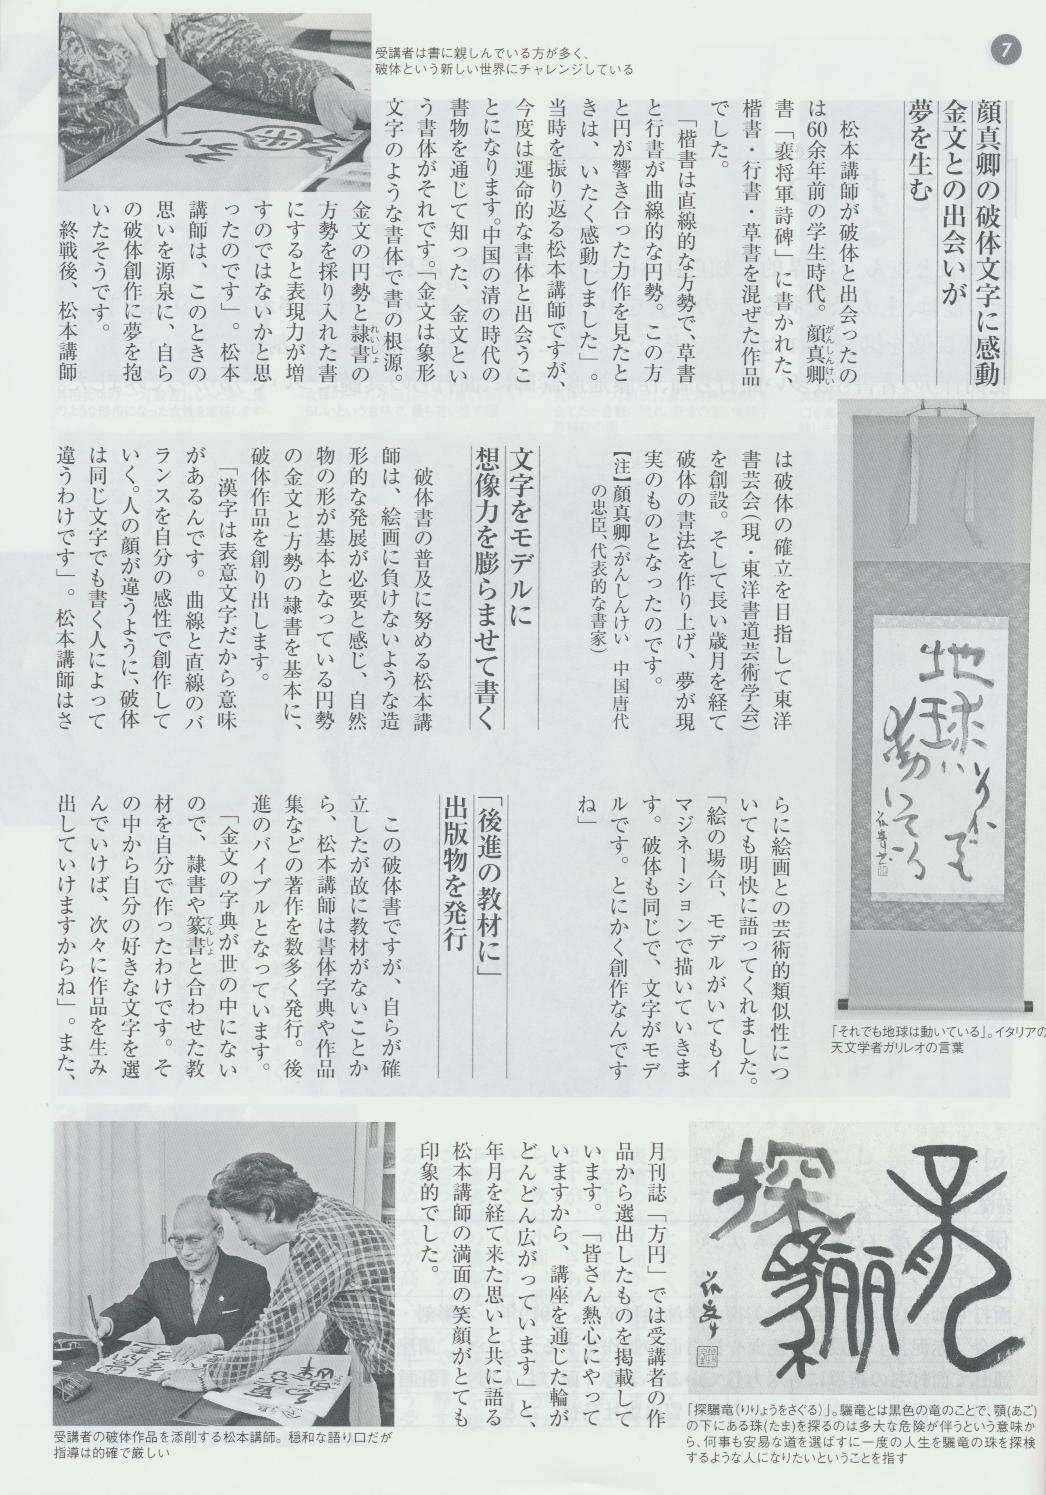 7
受講者は書に親しんでいる方が多く、
破体という新しい世界にチャレンジしている
顔真卿の破体文字に感動
金文との出会いが
夢を生む
松本講師が破体と出会ったの
は60余年前の学生時代。顔真卿
がんしんけい
書「裴将軍詩碑」に書かれた、
楷書・行書・草書を混ぜた作品
でした。
「楷書は直線的な方勢で、草書
と行書が曲線的な円勢。この方
と円が響き合った力作を見たと
きは、いたく感動しました」。
当時を振り返る松本講師ですが
今度は運命的な書体と出会うこ
とになります。中国の清の時代の
書物を通じて知った、金文とい
う書体がそれです。「金文は象形
文字のような書体で書の根源。
金文の円勢と隷書の
れいしょ
方勢を採り入れた書
にすると表現力が増
すのではないかと思
ったのです」。松本
講師は、このときの
思いを源泉に、自ら
の破体創作に夢を抱
いたそうです。
終戦後、松本講師
は破体の確立を目指して東洋
書芸会(現・東洋書道芸術学会)
を創設。そして長い歳月を経て
破体の書法を作り上げ、夢が現
実のものとなったのです。
【注】顔真卿(がんしんけい 中国唐代
の忠臣、代表的な書家)
文字をモデルに
想像力を膨らませて書く
破体書の普及に努める松本講
師は、絵画に負けないような造
形的な発展が必要と感じ、自然
物の形が基本となっている円勢
の金文と方勢の隷書を基本に、
破体作品を創り出します。
「漢字は表意文字だから意味
があるんです。曲線と直線のバ
ランスを自分の感性で創作して
いく。人の顔が違うように、破体
は同じ文字でも書く人によって
違うわけです」。松本講師はさ
らに絵画との芸術的類似性につ
いても明快に語ってくれました。
「絵の場合、モデルがいてもイ
マジネーションで描いていきま
す。破体も同じで、文字がモデ
ルです。とにかく創作なんです
ね」
「後進の教材に」
出版物を発行
この破体書ですが、自らが確
立したが故に教材がないことか
ら、松本講師は書体字典や作品
集などの著作を数多く発行。後
進のバイブルとなっています。
「金文の字典が世の中にない
ので、隷書や篆書と合わせた教
てんしょ
材を自分で作ったわけです。そ
の中から自分の好きな文字を選
んでいけば、次々に作品を生み
出していけますからね」。また、
月刊誌「方円」では受講者の作
品から選出したものを掲載して
います。「皆さん熱心にやって
いますから、講座を通じた輪が
どんどん広がっています」と、
年月を経て来た思いと共に語る
松本講師の満面の笑顔がとても
印象的でした。
地球は
動いている
それでも
「それでも地球は動いている」。イタリアの
天文学者ガリレオの言葉
探驪竜
「探驪竜(りりょうをさぐる)」。驪竜とは黒色の竜のことで、顎(あご)
の下にある珠(たま)を探るのは多大な危険が伴うという意味か
ら、何事も安易な道を選ばずに一度の人生を驪竜の珠を探検
するような人になりたいということを指す
受講者の破体作品を添削する松本講師。穏和な語り口だが
指導は的確で厳しい